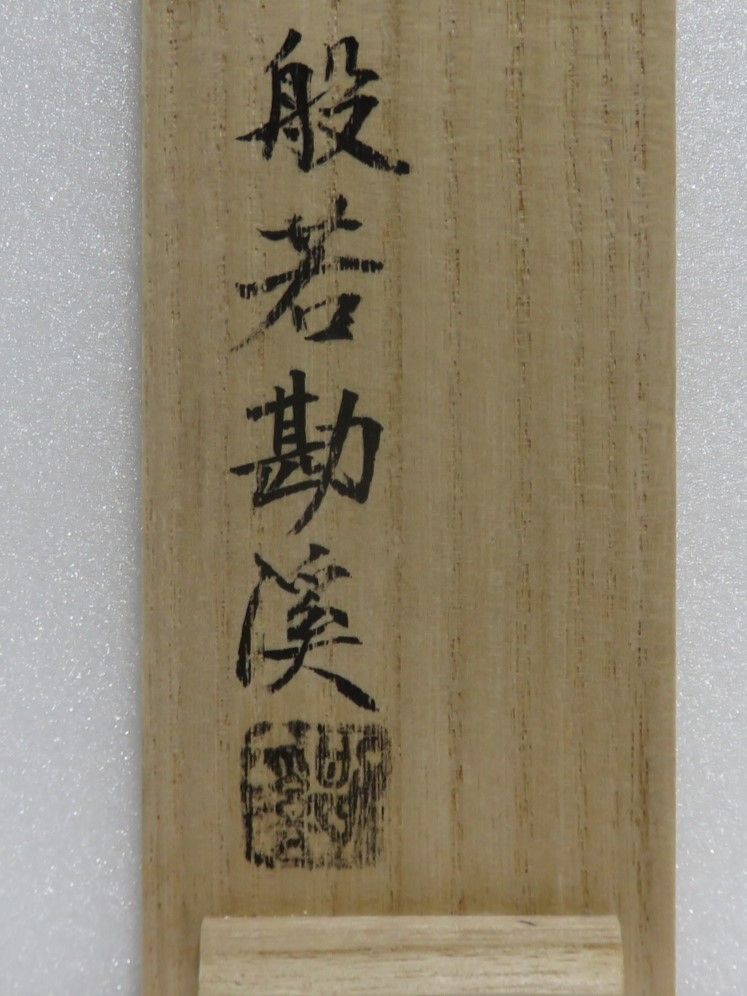 般若勘溪